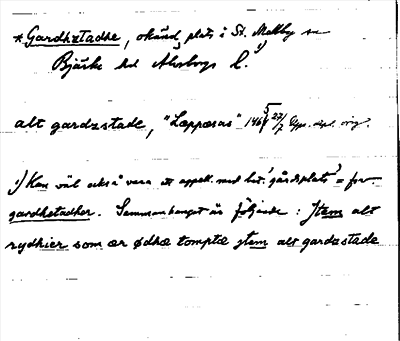 *Gardhstadhe, okänd plats i St. Mellby sn
Bjärke hd Älvsborgs l.
alt gardzstade, "Læppæsas" 1465 23/2 orig.
1) Kan väl också vara ett appell. med bet. 'gårdsplats' = fsv.
gardhstadher. Sammanhanget är följande: Jtem alt
rydhier som ær ødhæ tomptæ jtem alt gardzstade